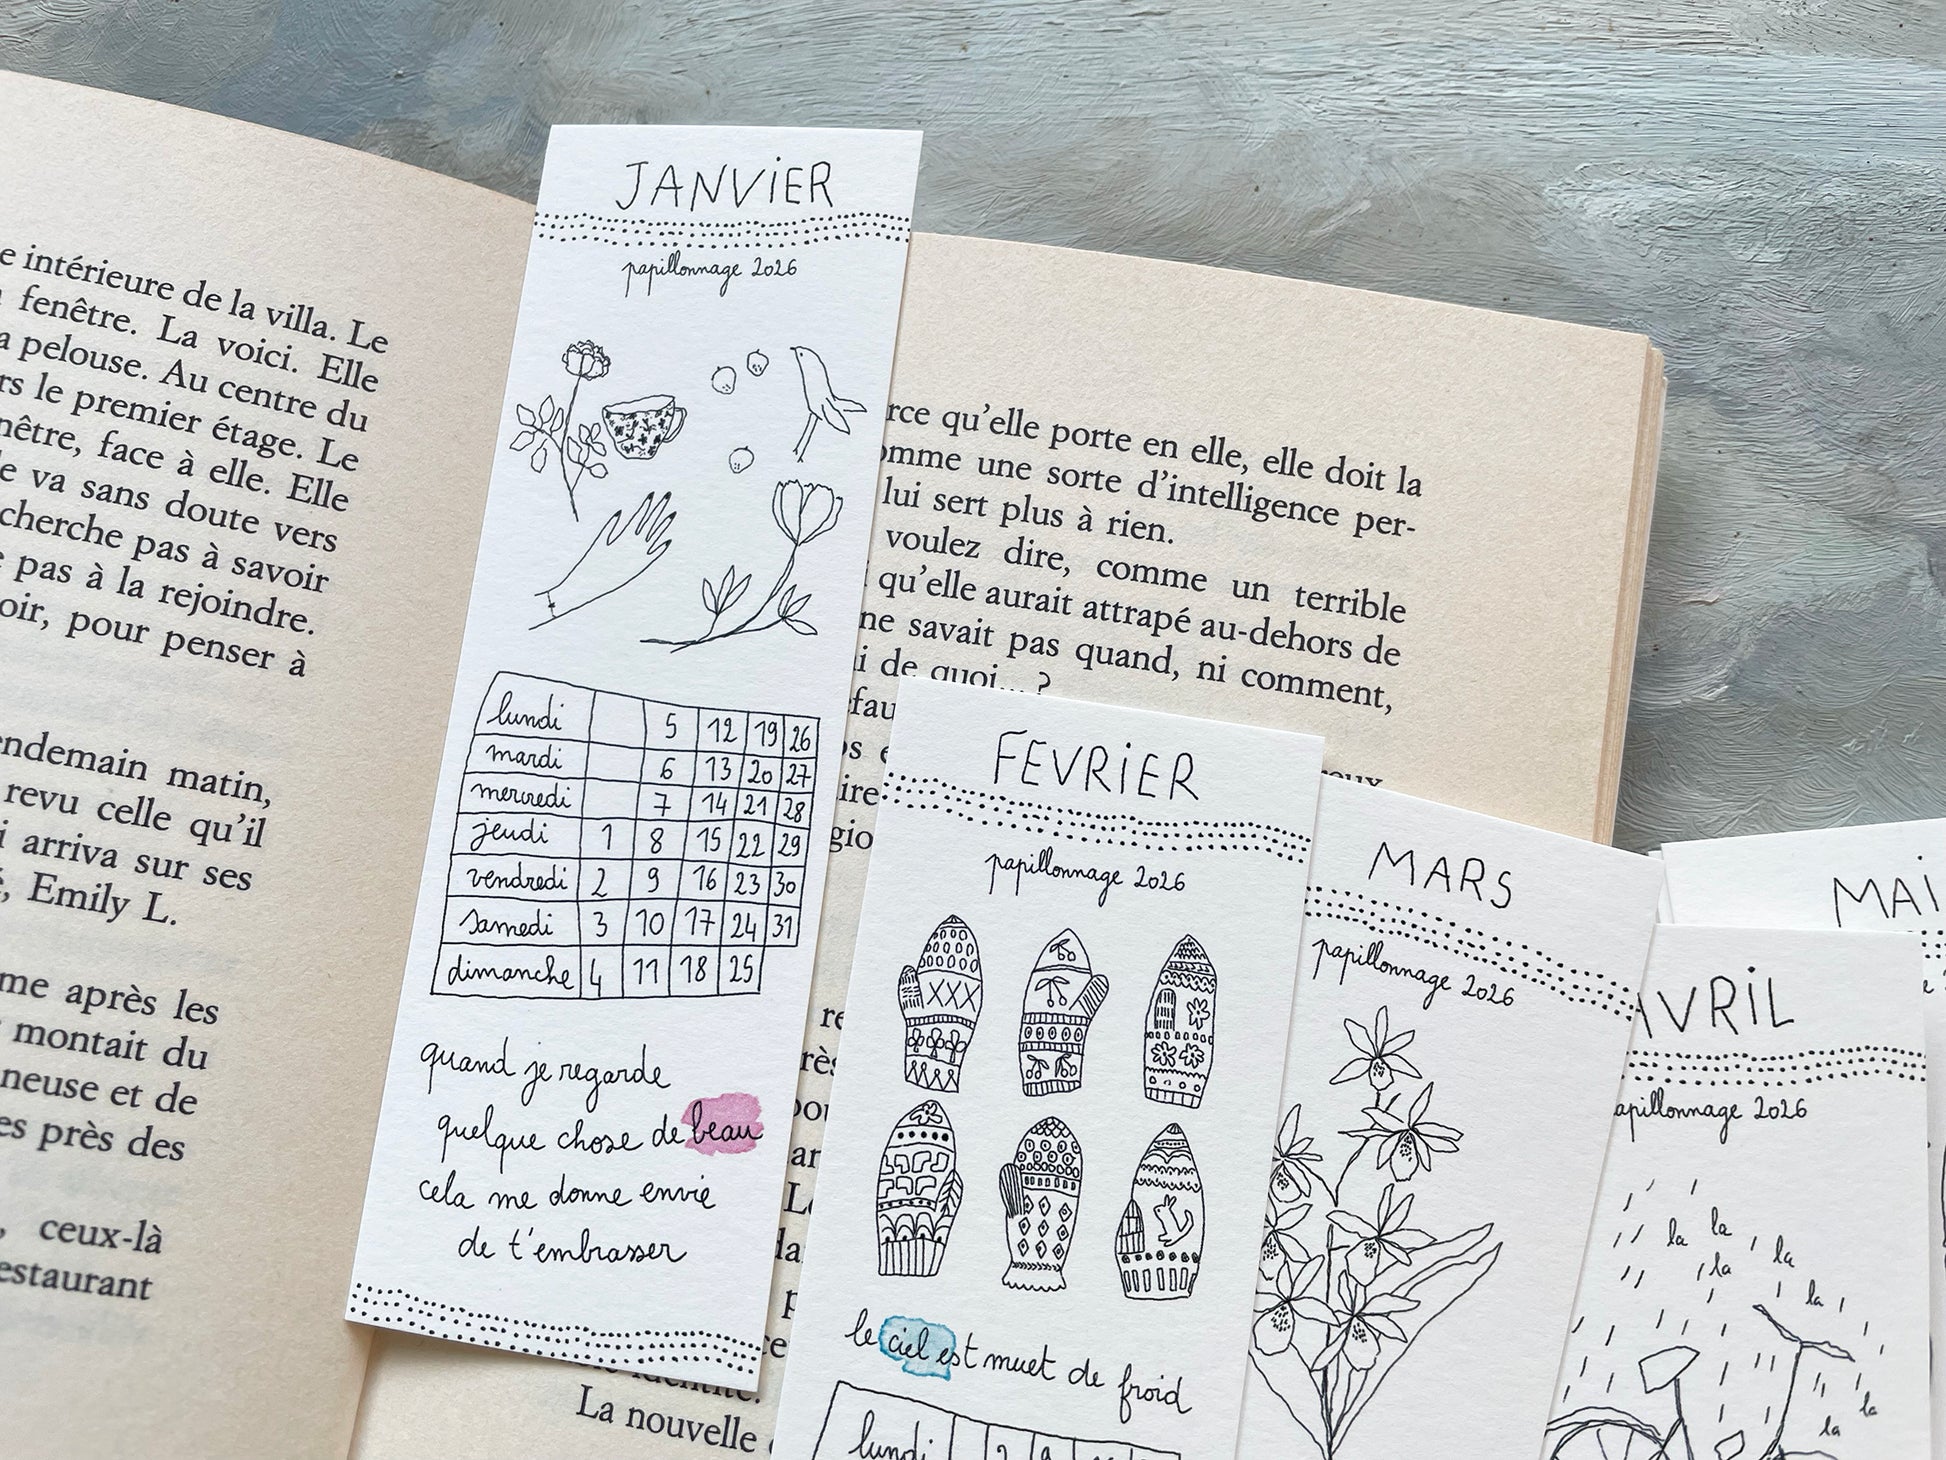 intérieure de la villa. Le
fenêtre. La voici. Elle
pelouse. Au centre du
le premier étage. Le
face à elle. Elle
va sans doute vers
cherche pas à savoir
pas à la rejoindre.
pour penser à
matin,
revu celle qu'il
arriva sur ses
Emily L.
après les
montait du
et de
près des
ceux-là
JANVIER
papillonnage 2026
lundi 5 12 19 26
mardi 6 13 20 27
mercredi 7 14 21 28
jeudi 1 8 15 22 29
vendredi 2 9 16 23 30
samedi 3 10 17 24 31
dimanche 4 11 18 25
quand je regarde
quelque chose de beau
cela me donne envie
de t'embrasser
qu'elle porte en elle, elle doit la
une sorte d'intelligence per-
lui sert plus à rien.
voulez dire, comme un terrible
qu'elle aurait attrapé au-dehors de
ne savait pas quand, ni comment,
de quoi... ?
La nouvelle
FEVRIER
papillonnage 2026
le ciel est muet de froid
lundi 2 9
MARS
papillonnage 2026
AVRIL
papillonnage 2026
la
la
la
la
la
la
la
MAI